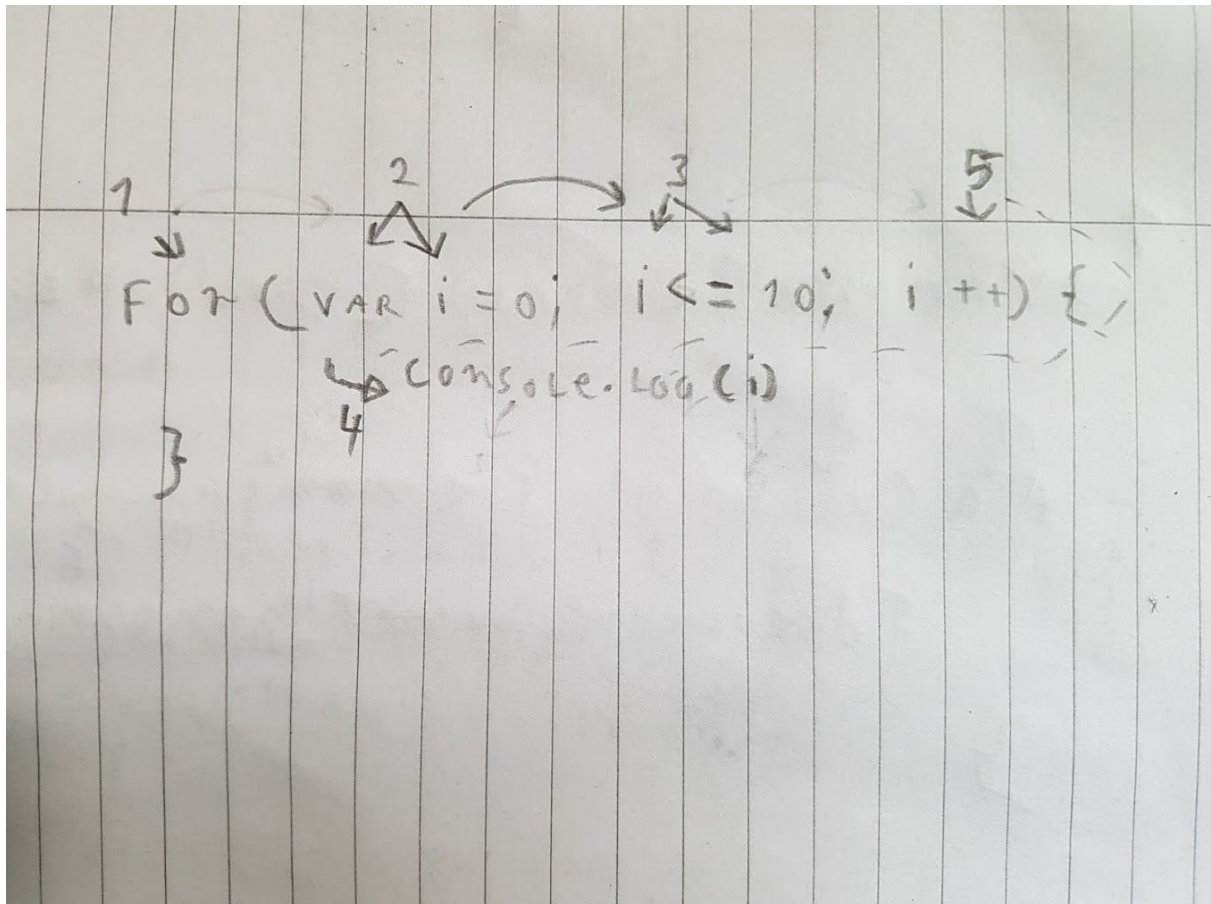 1 2 3 5
For (VAR i = 0; i <= 10; i ++) {
Console.Log(i)
4
}